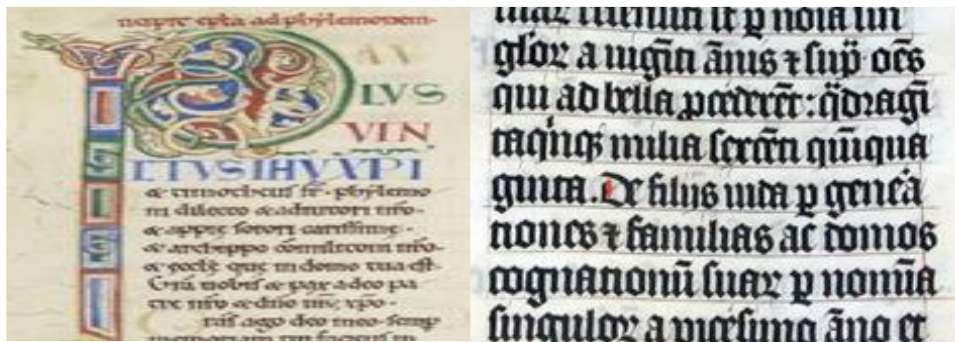 epła ad phylemonem·
P AV
LVS
VIN
ETVS IHV XPI
& timotheus fr̄· phylemo
ni dilecto & adiutori nr̄o·
& appie sorori carissime·
& archippo c̄militoni nr̄o·
& eccłę que in domo tua est·
Gr̄a uobis & pax a deo pa
tre nr̄o & dn̄o ih̄u xpo·
tias ago deo meo semp
memoriam tui faciens in
ꝑ noīa sin
gloꝝ a uigīti ānis ⁊ sup̄ oc̄s
qui ad bella ꝓcederēt: q̄dragī
taqnqꝫ milia sexcēti quīqua
ginta. De filijs iuda ꝑ genea
tiones ⁊ familias ac domos
cognationū suaꝝ ꝑ nomīa
singuloꝝ a vicesimo āno et